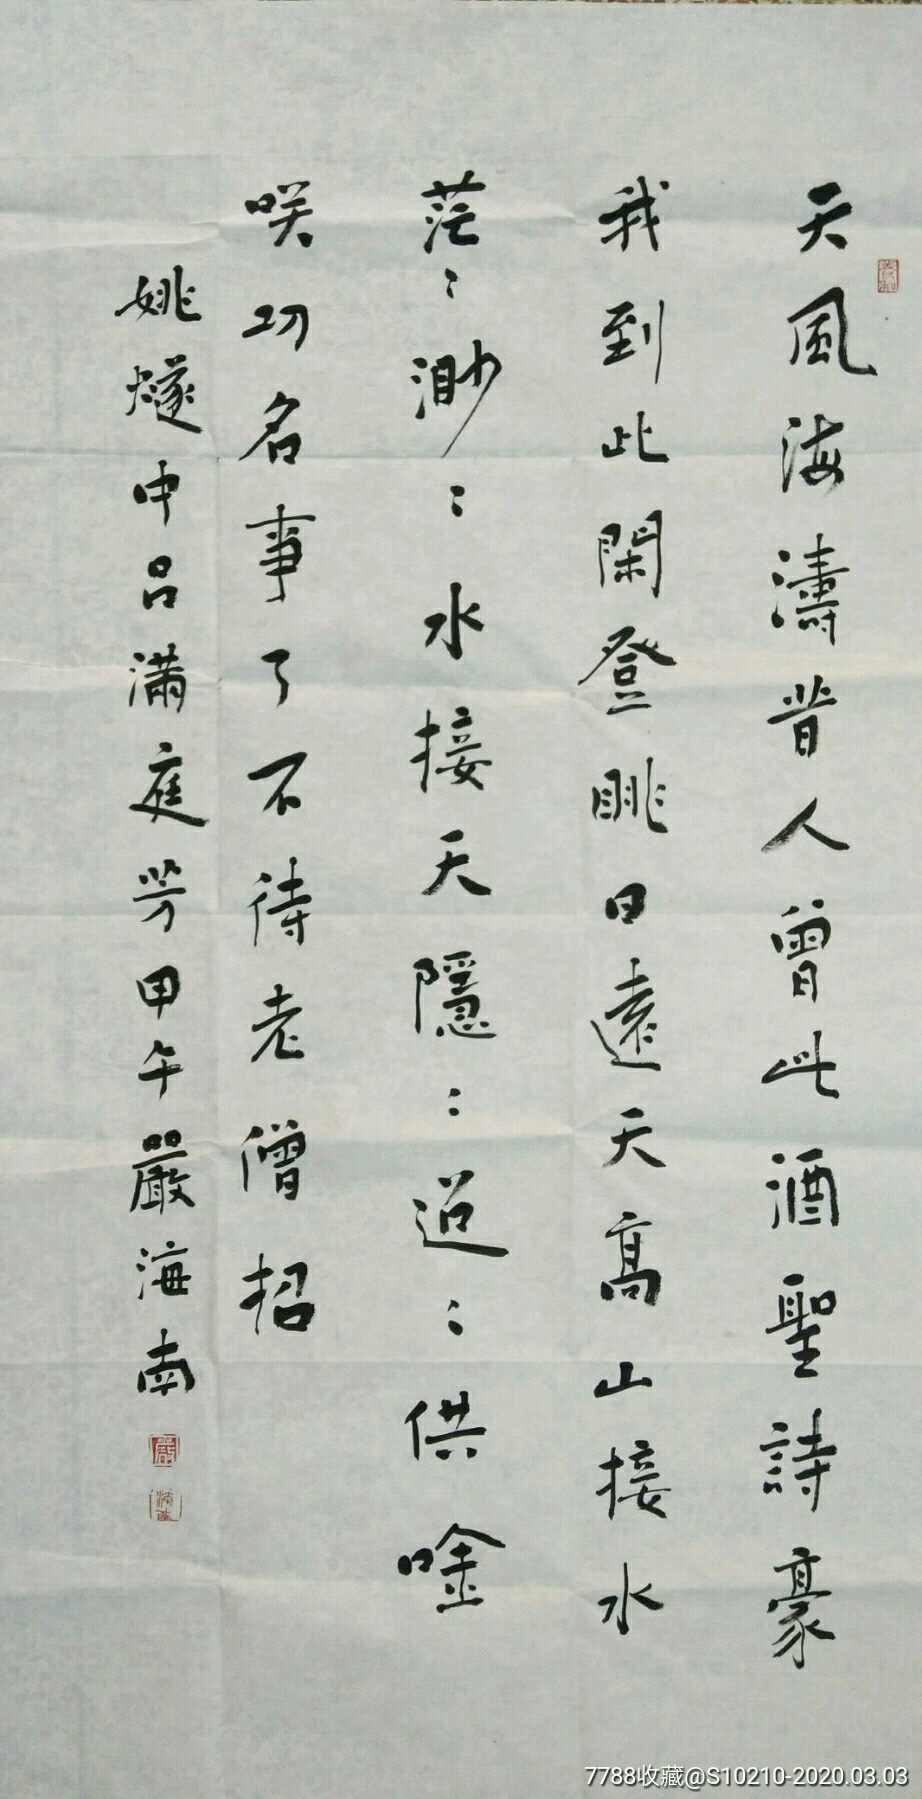 天風海濤昔人曾此酒聖詩豪
我到此閑登眺日遠天高山接水
茫〻渺〻水接天隱〻迢〻供唫
咲功名事了不待老僧招
姚燧中呂滿庭芳甲午嚴海南
7788收藏@S10210-2020.03.03